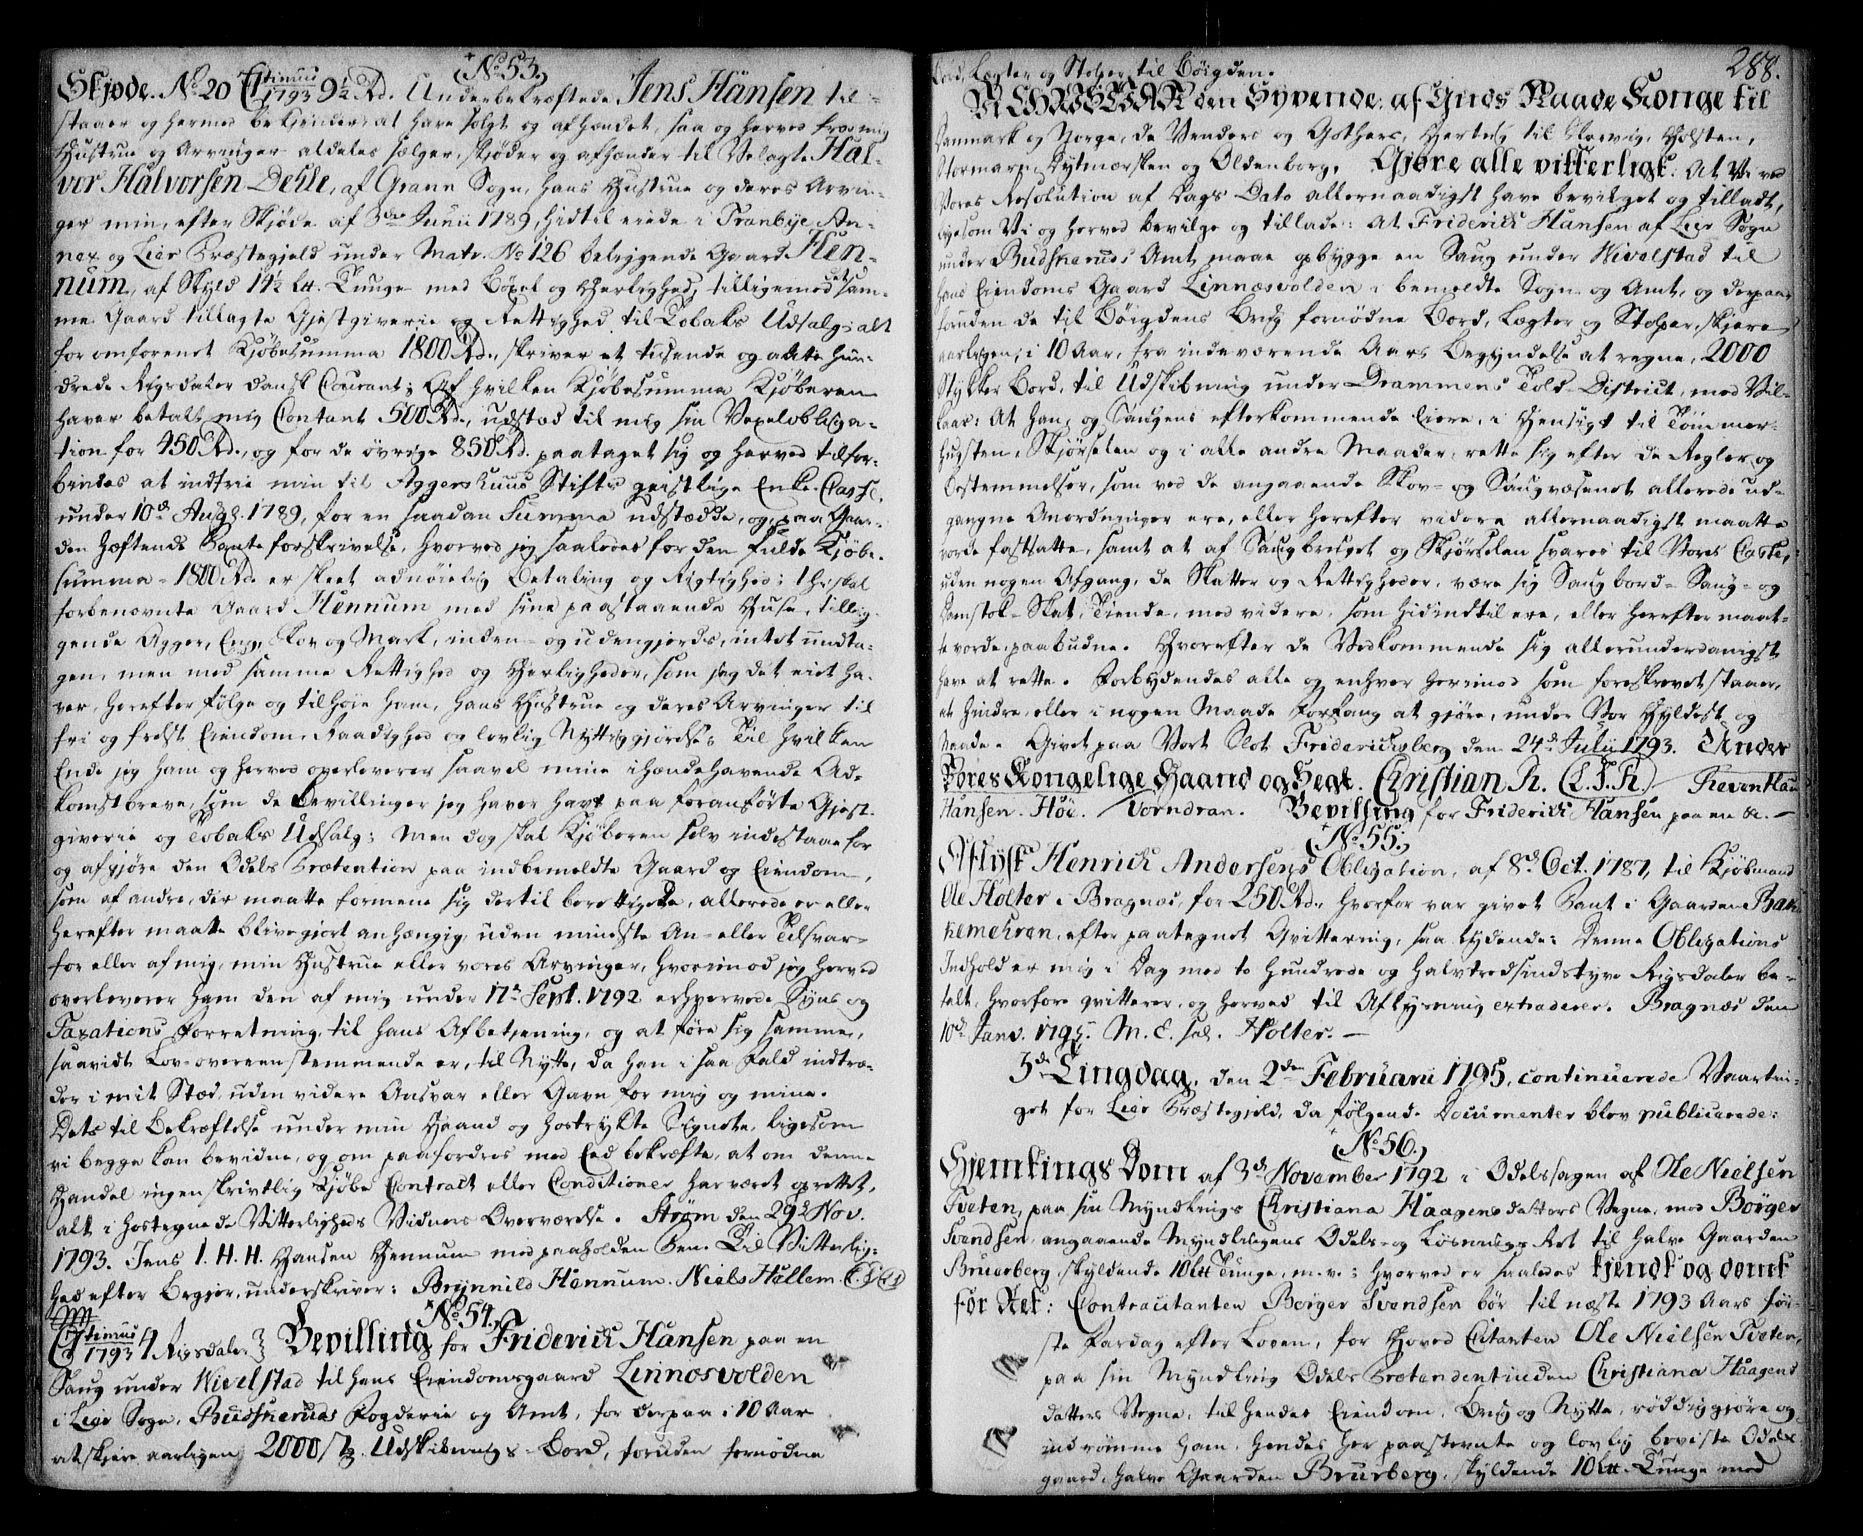 No 53.
Skjøde. No 20 Ctimus 1793 9½ Rd. Underbekræftede Jens Hansen til-
staaer og hermed bekjender at have solgt og afhændet, saa og herved fra mig
Hustrue og Arvinger aldeles sælger, skjøder og afhænder til Velagte Hal-
vor Halvorsen Dehle, af Grann Sogn, hans Hustrue og deres Arvin-
ger min, efter Skjøde af 3die Junii 1789, hidtil eiede i Tranbye An-
nex og Lier Præstegield under Matr. No 126 beliggende Gaard Hen-
num, af Skyld 14½ Lt. Tunge med Bøxel og Herlighed, tilligemed det sam-
me Gaard tillagte Gjestgiverie og Rettighed til Tobaks Udsalg; alt
for omforenet Kjøbesumma 1800 Rd., skriver et tusende og aatte hun-
drede Rigsdaler dansk Courant; Af hvilken Kjøbesumma Kjøberen
haver betalt mig Contant 500 Rd., udstæd til mig sin Vexelobliga-
tion for 450 Rd., og for de øvrige 850 Rd. paataget sig og herved tilfor-
bindes at indfrie min til Aggershuus Stifts geistlige Enke-Casse,
under 10de Augs. 1789, for en saadan Summa udstædde, og paa Gaar-
den hæftende Pante forskrivelse, hvorved jeg saaledes for den fulde Kjøbe-
summa 1800 Rd. er skeet adnøielig Betaling og Rigtighed; thi skal
forbenævnte Gaard Hennum med sine paastaaende Huse, tillig-
gende Agger, Eng, Skov og Mark, inden- og udengjerds, intet undta-
gen, men med samme Rettighed og Herligheder, som jeg det eiet ha-
ver, herefter følge og tilhøre ham, hans Hustrue og deres Arvinger til
fri og frelst Eiendom, Raadighed og lovlig Nyttiggjørelse; Til hvilken
Ende jeg ham og herved overleverer saavel mine ihændehavende Ad-
komstbreve, som de Bevillinger jeg haver havt paa foranførte Gjest-
giverie og Tobaks Udsalg; Men dog skal Kjøberen selv indestaae for
og afgjøre den Odels Prætention paa indbemeldte Gaard og Eiendom,
som af andre, der maatte formene sig dertil berettigede, allerede er eller
herefter maatte blive gjort anhængig, uden mindste An- eller Tilsvar
for eller af mig, min Hustrue eller vores Arvinger, hvorimod jeg herved
overleverer ham den af mig under 17de Sept. 1792 erhvervede Syns og
Taxations Forretning, til hans Afbetjening, og at føre sig samme,
saavidt Lov-overeenstemmende er, til Nytte, da han i saa Fald indtræ-
der i mit Sted, uden videre Ansvar eller Gavn for mig og mine.
Dets til Bekræftelse under min Haand og hostrykte Signete, ligesom
vi begge kan bevidne, og om paafordres med Eed bekræfte, at om denne
Handel ingen skrivtlig Kjøbe Contract eller Conditioner har været oprettet,
alt i hostegnede Vitterligheds Vidners Overværelse. Strøm den 29de Nov.
1793. Jens I. H. H. Hansen Hennum med paaholden Pen. Til Vitterlig-
hed efter Begjer, underskriver: Brynnild Hennum. Niels Hallem.
No 54.
Ctimus 1793 4 Rigsdaler } Bevilling for Friderich Hansen paa en
Saug under Nivelstad til hans Eiendomsgaard Linnesvolden
i Lier Sogn, Budskeruds Fogderie og Amt, for derpaa i 10 Aar
at skjære aarligen 2000 Udskibnings-Bord, foruden fornødne
288.
Bord, Lægter og Stolper til Bøigden.
CHRISTIAN den Syvende, af Guds Naade Konge til
Danmark og Norge, de Venders og Gothers, Hertug til Slesvig, Holsten,
Stormarn, Dytmersken og Oldenborg, Gjøre alle vitterligt: At Vi ved
Vores Resolution af Dags Dato allernaadigst have bevilget og tilladt,
ligesom Vi og herved bevilge og tillade: At Friderich Hansen af Lier Sogn
under Budskeruds Amt maae opbygge en Saug under Nivelstad til
hans Eiendoms Gaard Linnesvolden i bemeldte Sogn og Amt, og derpaa
foruden de til Bøigdens Brug fornødne Bord, Lægter og Stolper, skjære
aarligen, i 10 Aar, fra indeværende Aars Begyndelse at regne, 2000
Stykker Bord, til Udskibning under Drammens Told-District, med Vil-
kaar: At han, og Saugens efterkommende Eiere, i Henseigt til Tømmer-
hugsten, Kjørselen og i alle andre Maader, rette sig efter de Regler og
Bestemmelser, som ved de angaaende Skov- og Saugvæsenet allerede ud-
gangne Anordninger ere, eller herefter videre allernaadigst maatte
vorde fastsatte, samt at af Saugbruget og Kjørselen svares til Vores Casse,
uden nogen Afgang, de Skatter og Rettigheder, være sig Saugbord- Saug- og
Damstok-Skat, Tiende, med videre, som hidindtil ere, eller herefter maat-
te vorde paabudne. Hvorefter de Vedkommende sig allerunderdanigst
have at rette. Forbydendes alle og enhver herimod som foreskrevet staaer,
at hindre, eller i nogen Maade Forfang at gjøre, under Vor Hyldest og
Naade. Givet paa Vort Slot Friderichsberg den 24de Julii 1793. Under
Vores Kongelige Haand og Segl. Christian R. (L. S. R.)
Hansen. Høe. / Vorndran. Bevilling for Friderich Hansen paa en &c. —
No 55.
Aflyst Henrich Andersens Obligation, af 8de Oct. 1787, til Kjøbmand
Ole Holter i Bragnes, for 250 Rd., hvorfor var givet Pant i Gaarden Bak-
kemehren, efter paategnet Qvittering, saa lydende: Denne Obligations
Indhold er mig i Dag med to Hundrede og Halvtredsindstyve Rigsdaler be-
talt, hvorfore qvitterer, og herved til Aflysning extraderer. Bragnæs den
10de Janv. 1795. M. E. sal. Holter. —
3die Tingdag, den 2den Februarii 1795, continuerede Vaartin-
get for Lier Præstegield, da følgende Documenter blev publicerede:
No 56.
Hjemtings Dom af 3de November 1792 i Odelssagen af Ole Nielsen
Tveten, paa sin Myndtlings Christiana Haagensdatters Vegne, mod Børger
Svendsen, angaaende Myndtlingens Odels- og Løsnings Ret til halve Gaarden
Bruerberg, skyldende 10 Lt Tunge, m. v.; hvorved er saaledes kjendt og dømt
for Ret: Contracitanten Børger Svendsen bør til næste 1793 Aars før-
ste Fardag efter Loven, for Hoved Citanten Ole Nielsen Tveten,
paa sin Myndtling Odels Prætendentinden Christiana Haagens-
datters Vegne, til hendes Eiendom, Brug og Nytte, røddiggjøre og
indrømme ham, hendes her paastævnte og lovlig beviste Odels-
gaard, halve Gaarden Bruerberg, skyldende 10 Lt. Tunge med